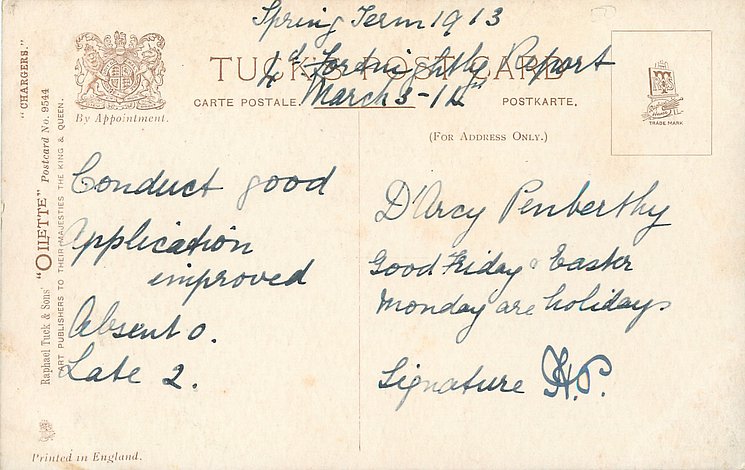 Spring Term 1913
TUCK'S POST CARD
Fortnightly Report
March 3 - 14
CARTE POSTALE.
POSTKARTE.
By Appointment.
(FOR ADDRESS ONLY.)
TRADE MARK
"CHARGERS."
Raphael Tuck & Sons' "OILETTE" Postcard No. 9544
ART PUBLISHERS TO THEIR MAJESTIES THE KING & QUEEN.
Conduct good
Application
improved
Absent 0.
Late 2.
D'Arcy Penberthy
Good Friday & Easter
Monday are holidays
Signature H.P.
Printed in England.